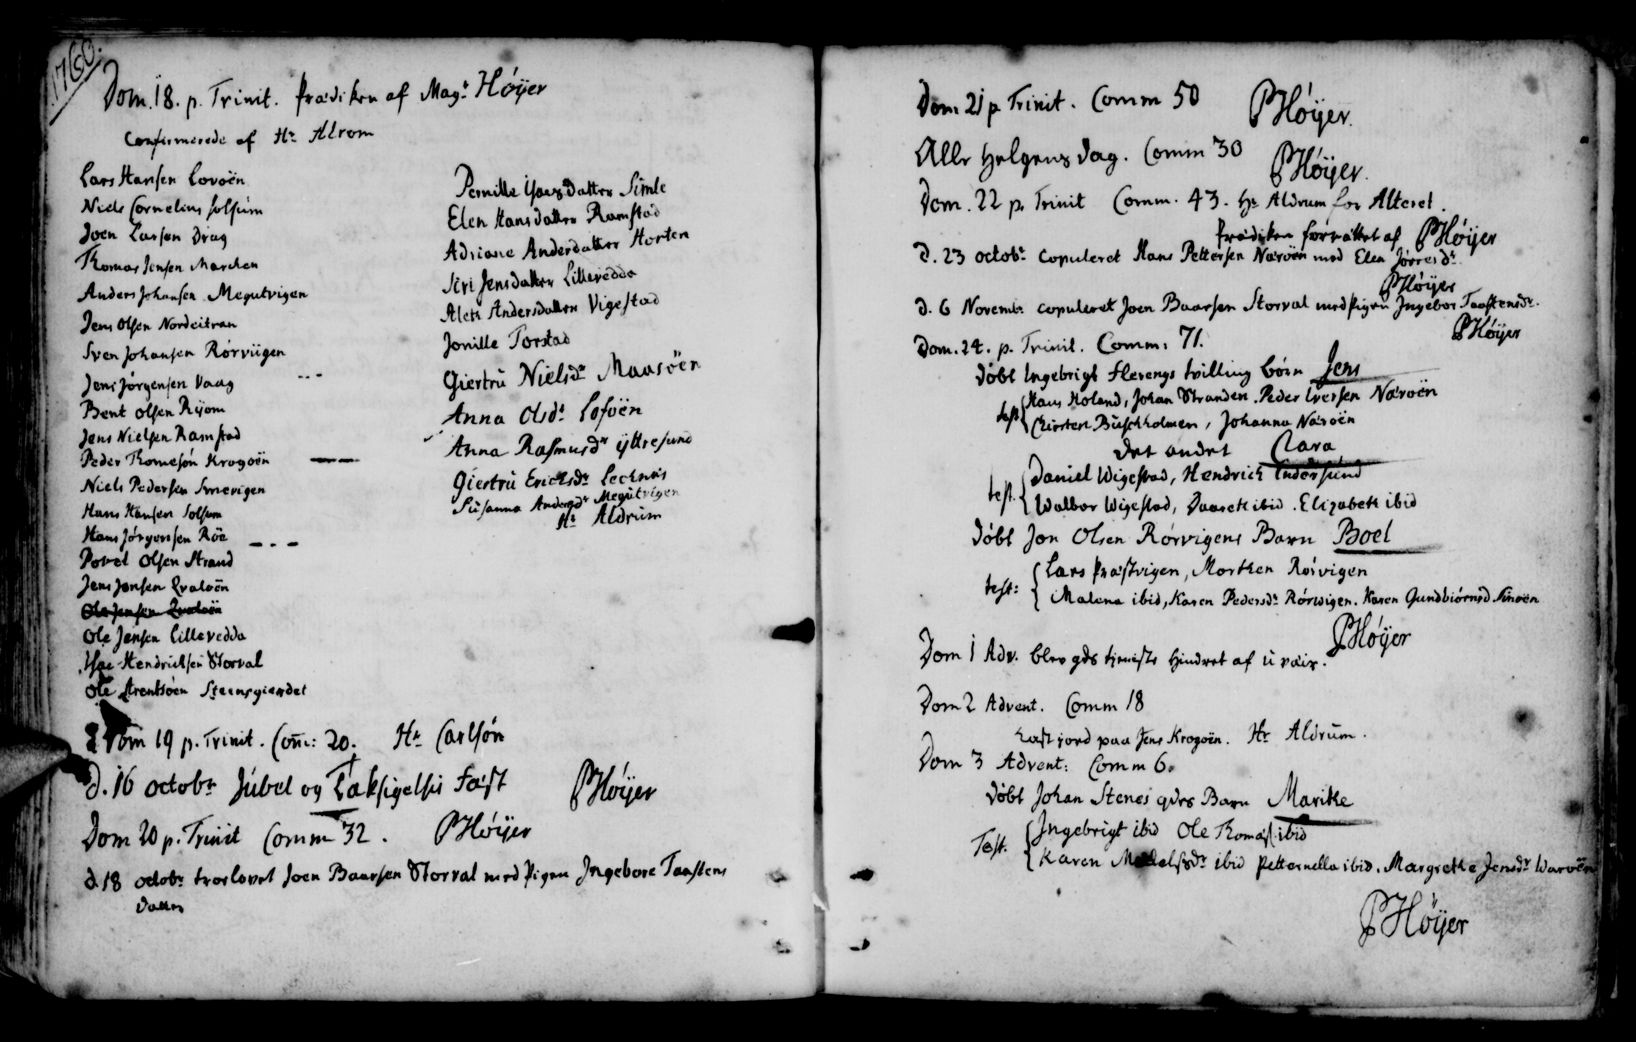 1760.
Dom. 18. p. Trinit. Prædiken af Magr Høÿer
Confirmerede af Hr Alrom
Lars Hansen Lovöen
Niels Cornelius Solsum
Joen Larsen Drag
Thomas Jensen Marchen
Anders Johansen Megutvigen
Jens Olsen Nordeitran
Sven Johansen Rörviigen
Jens Jörgensen Vaag
Bent Olsen Rÿom
Jens Nielsen Ramstad
Peder Thomesön Krogöen
Niels Pedersen Smerigen
Hans Hansen Solsum
Hans Jörgensen Röe
Povel Olsen Strand
Jens Jensen Qvalöen
Ole Jensen Qvalöen
Ole Jensen Lillevedda
Isac Hendrichsen Storval
Ole Arentsöen Steensgierdet
Pernille Isaesdatter Simle
Elen Hansdatter Ramstad
Adriane Andersdatter Horten
Siri Jensdatter Lillevedda
Aleth Andersdatter Vigestad
Jonille Torstad
Giertru Nielsdr Maasöen
Anna Olsdr Loföen
Anna Rasmusdr Ÿttresund
Giertru Erichsdr Lecknes
Susanna Andersdr Megutvigen
Hr Aldrum
Dom 19 p. Trinit. Com: 20. Hr Carlsön
d. 16 octobr Jubel og Taksigelsis Fæst PHøÿer
Dom 20 p. Trinit Comm 32. PHøÿer
d. 18 octobr troelovet Joen Baarsen Storval med Pigen Ingebore Taastens
datter
Dom. 21 p Trinit. Comm 50 PHøÿer.
Alle Helgens dag. Comm 30 PHøÿer.
Dom. 22 p. Trinit Comm. 43. Hr Aldrum for Alteret.
Prædiken forrættet af PHøÿer
d. 23 octobr copuleret Hans Pettersen Næröen med Elen Jörresdr
PHøÿer
d. 6 Novembr copuleret Joen Baarsen Storval med Pigen Ingebor Taastensdr.
PHøÿer
Dom. 24. p. Trinit. Comm: 71.
döbt Ingebrigt Flerengs tvilling börn Jens
test. Hans Holand, Johan Stranden. Peder Iversen Næröen
Chirsten Buschholmen, Johanna Næröen
det andet Clara
test. Daniel Wigestad, Hendrich Indersund
Walbor Wigestad, Daareth ibid. Elizabeth ibid
döbt Jon Olsen Rörvigens Barn Boel
test: Lars Præstvigen, Morthen Rörvigen
Malena ibid, Karen Pedersdr Rörwigen. Karen Gundbiörnsd
PHøÿer
Dom 1 Adv. blev gds tieniste hindret af uvæir.
Dom 2 Advent. Comm 18
Kast jord paa Jens Krogöen. Hr Aldrum.
Dom 3 Advent: Comm 6.
döbt Johan Stenes gdes Barn Marithe
Test. Ingebrigt ibid Ole Thomæs. ibid
Karen ibid Petternella ibid. Margrethe Jensdr Waröen
PHøÿer